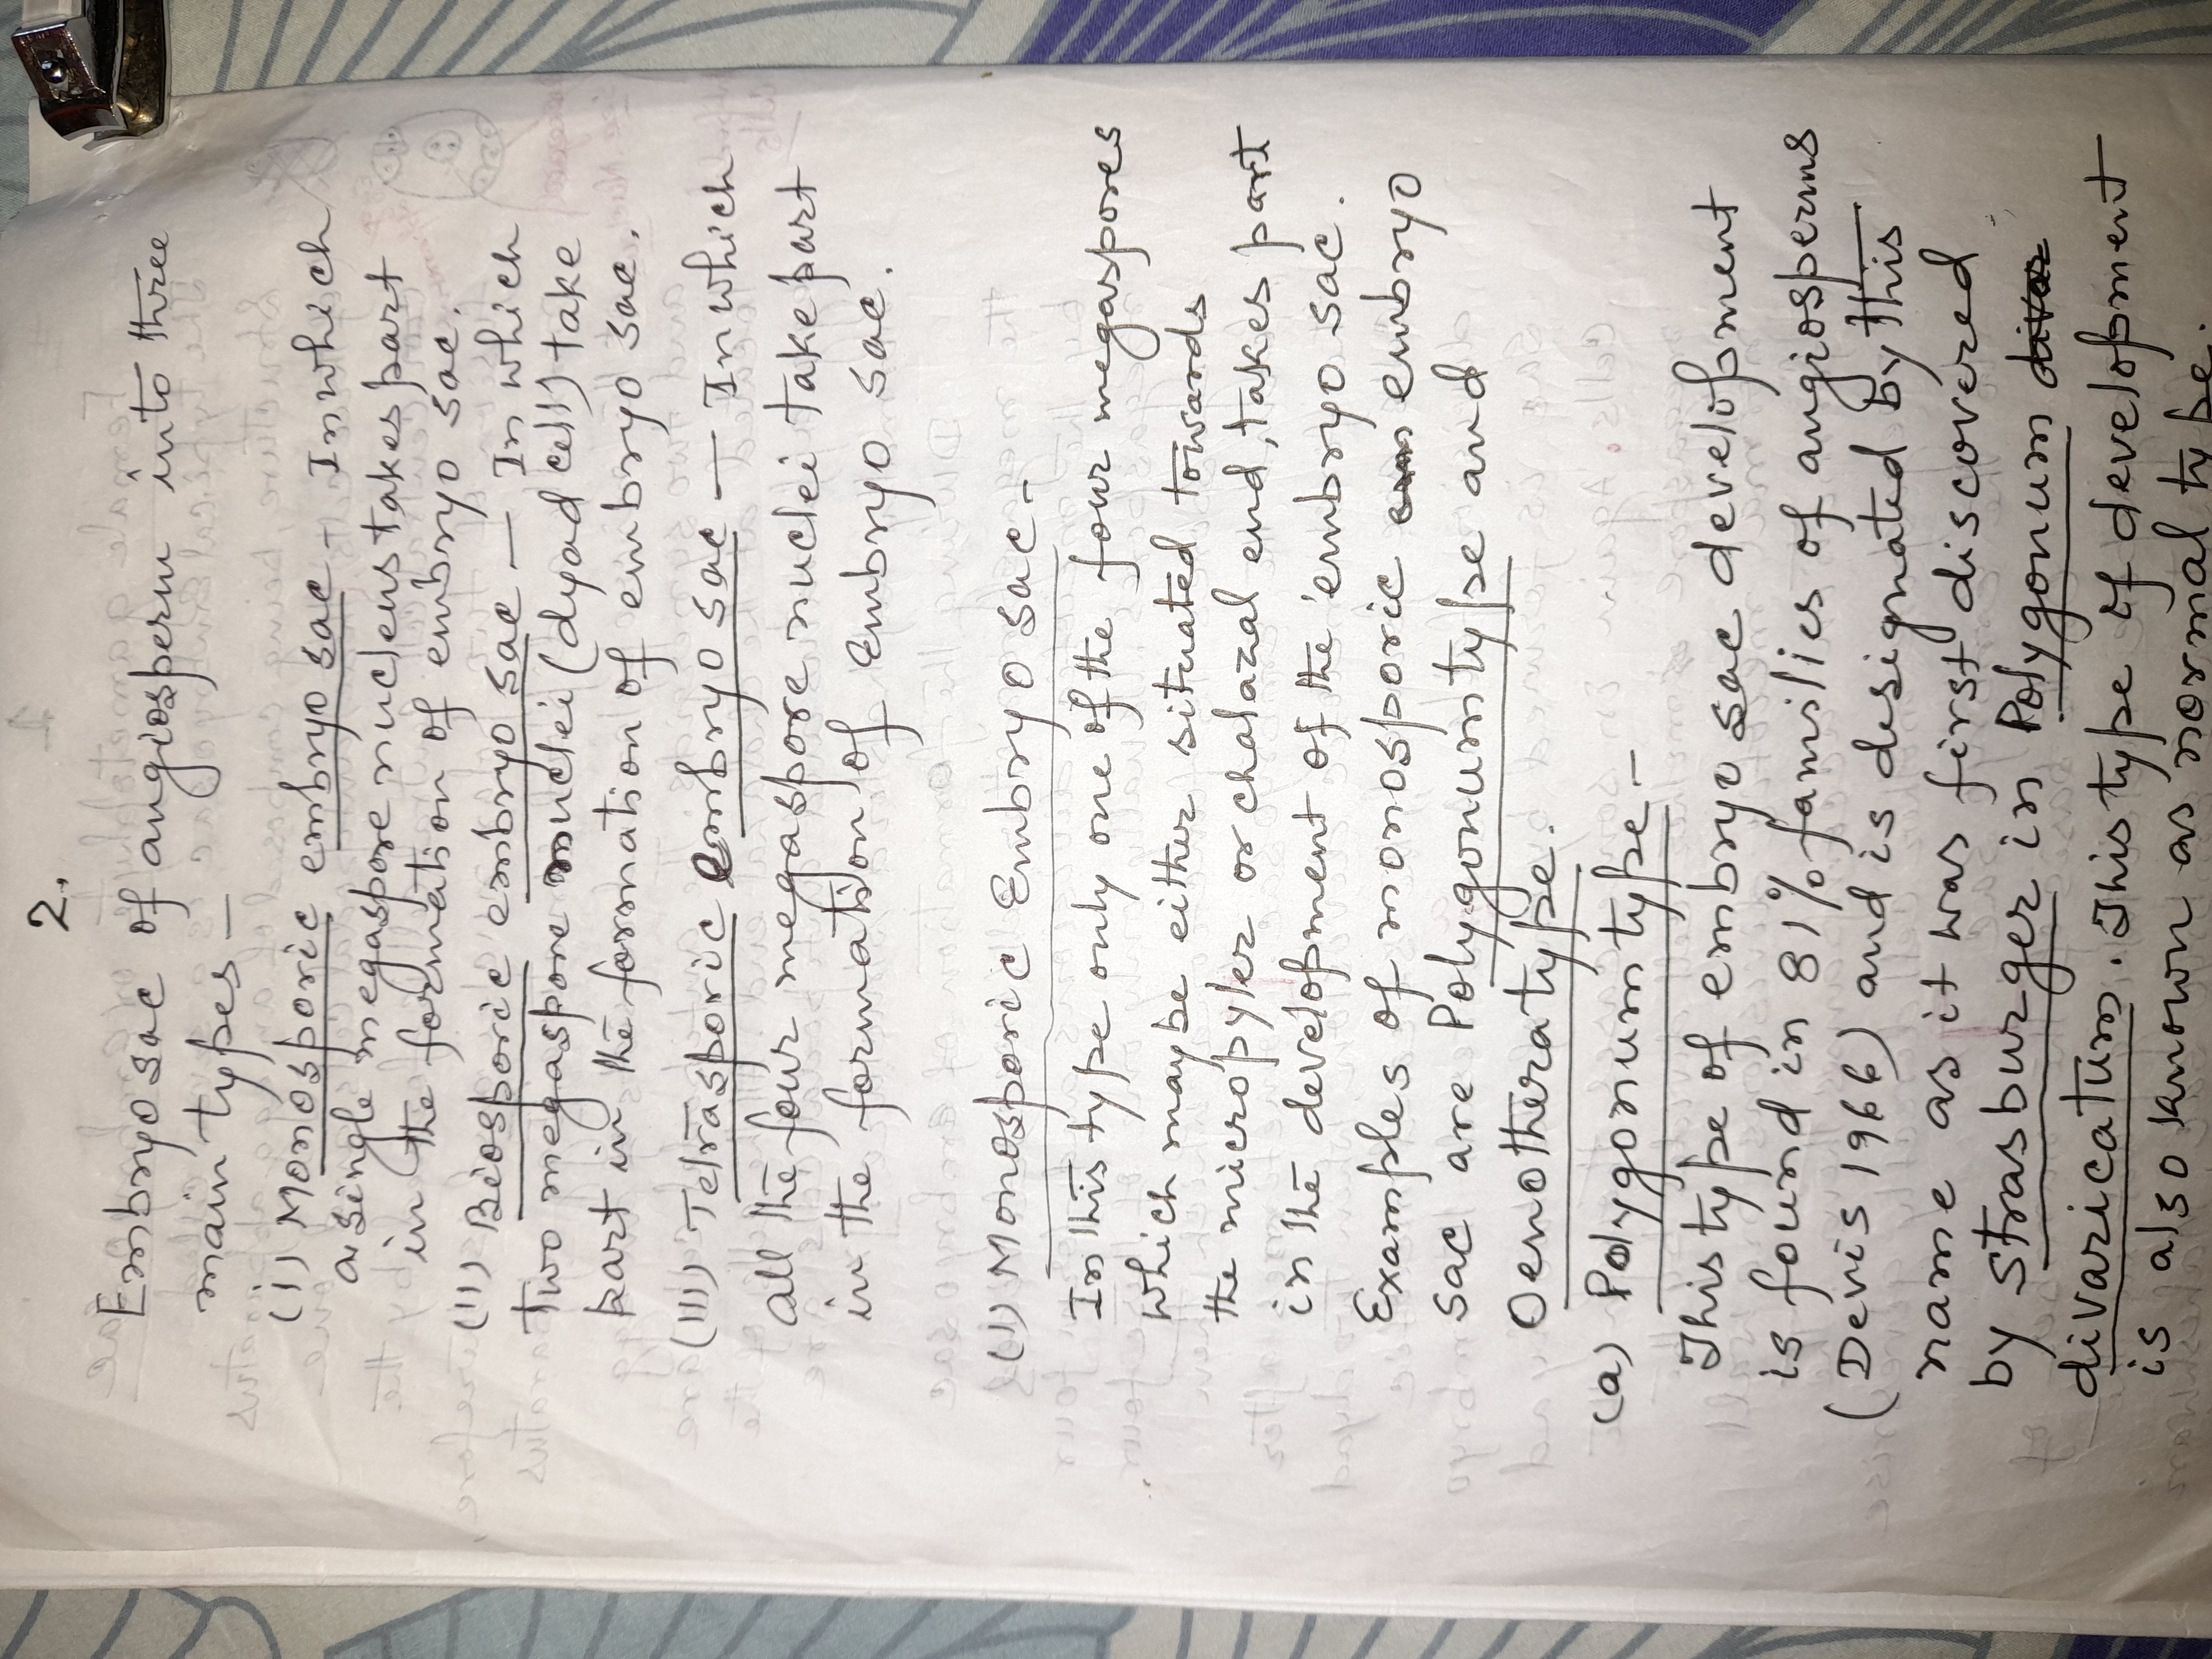 2.
Embryo sac of angiosperm into three
main types —
(i) Monosporic embryo sac - In which
a single megaspore nucleus takes part
in the formation of embryo sac.
(II) Biosporic embryo sac — In which
Two megaspore nuclei (dyad cell) take
part in the formation of embryo sac.
(III) Tetrasporic embryo sac — In which
all the four megaspore nuclei take part
in the formation of Embryo sac.
(I) Monosporic Embryo sac -
In this type only one of the four megaspores
which may be either situated towards
the micropyler or chalazal end, takes part
in the development of the embryo sac.
Examples of monosporic embryo
sac are Polygonum type and
Oenothera type.
(a) Polygonum type -
This type of embryo sac development
is found in 81% families of angiosperms
(Devis 1966) and is designated by this
name as it was first discovered
by Strasburger in Polygonum
divaricatum. This type of development
is also known as normal type.